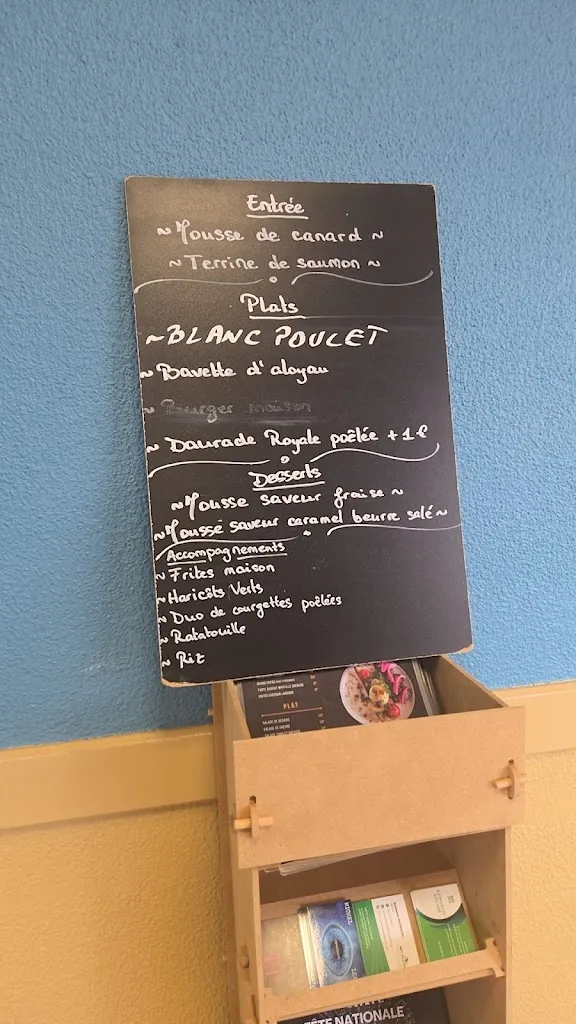 Entrée
~ Mousse de canard ~
~ Terrine de saumon ~
Plats
~ BLANC POULET
~ Bavette d'aloyau
~ Burger maison
~ Daurade Royale poêlée + 1 €
Desserts
~ Mousse saveur fraise ~
~ Mousse saveur caramel beurre salé ~
Accompagnements
~ Frites maison
~ Haricôts Verts
~ Duo de courgettes poêlées
~ Ratatouille
~ Riz
PLAT
FÊTE NATIONALE